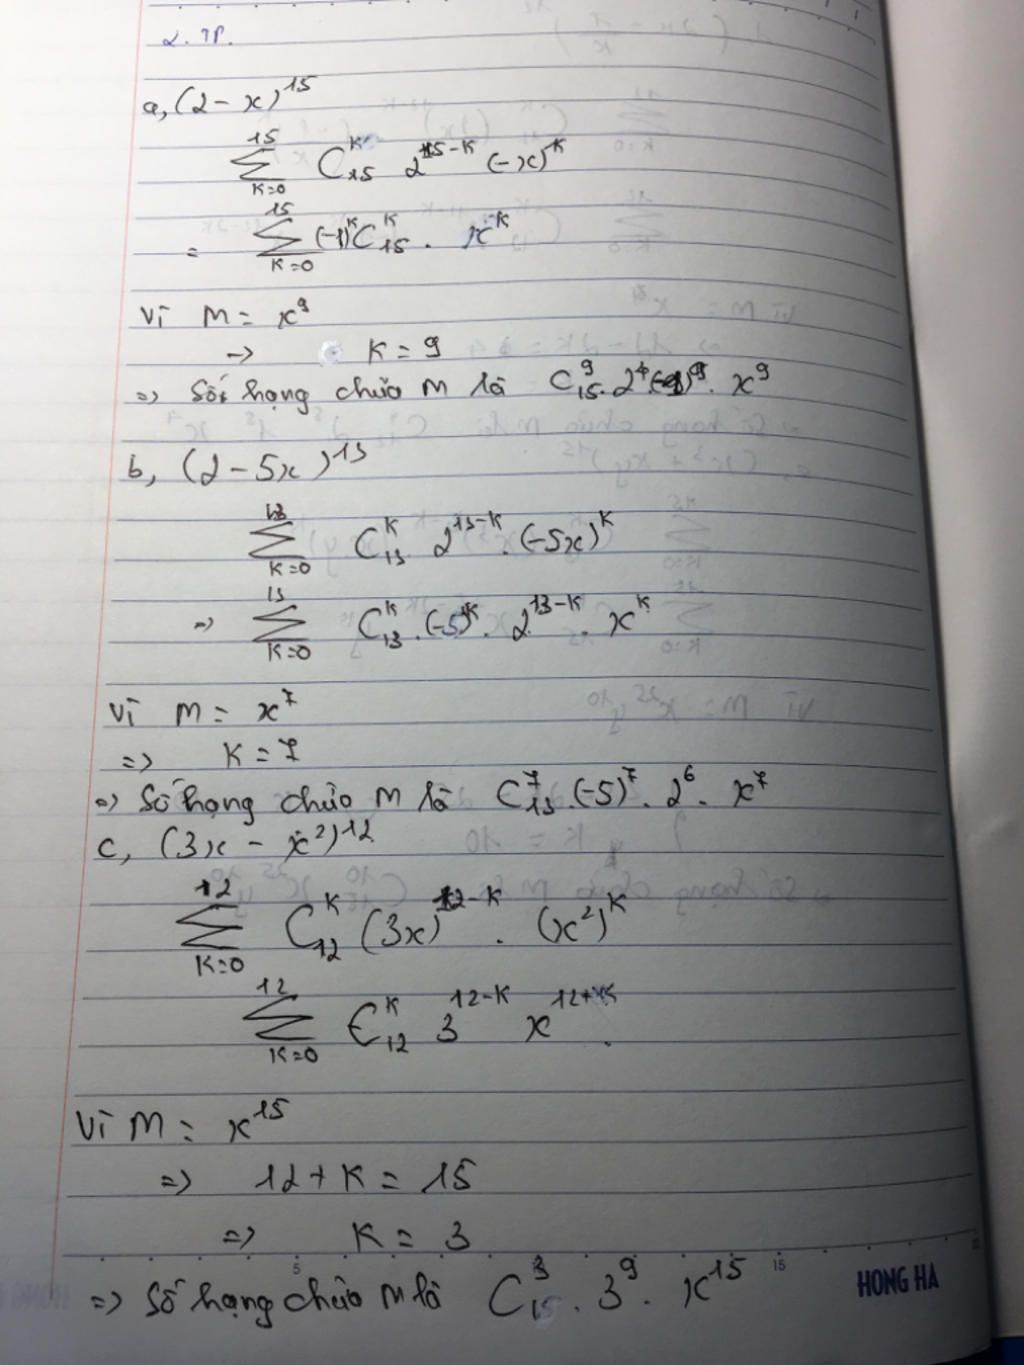 2. TP.
a, (2 - x)^15
∑_{K=0}^{15} C_{15}^{K} 2^{15-K} (-x)^K
= ∑_{K=0}^{15} (-1)^K C_{15}^{K} . x^K
Vì M = x^9
-> K = 9
=> Số hạng chứa M là C_{15}^{9}. 2^4 (-1)^9 . x^9
b, (2 - 5x)^13
∑_{K=0}^{13} C_{13}^{K} 2^{13-K} . (-5x)^K
=> ∑_{K=0}^{13} C_{13}^{K} . (-5)^K . 2^{13-K} . x^K
Vì M = x^7
=> K = 7
=> Số hạng chứa M là C_{13}^{7} . (-5)^7 . 2^6 . x^7
c, (3x - x^2)^12
∑_{K=0}^{12} C_{12}^{K} (3x)^{12-K} . (x^2)^K
∑_{K=0}^{12} C_{12}^{K} 3^{12-K} x^{12+K} .
Vì M = x^15
=> 12 + K = 15
=> K = 3
=> Số hạng chứa M là C_{15}^{3} . 3^9 . x^15
5 15
HONG HA